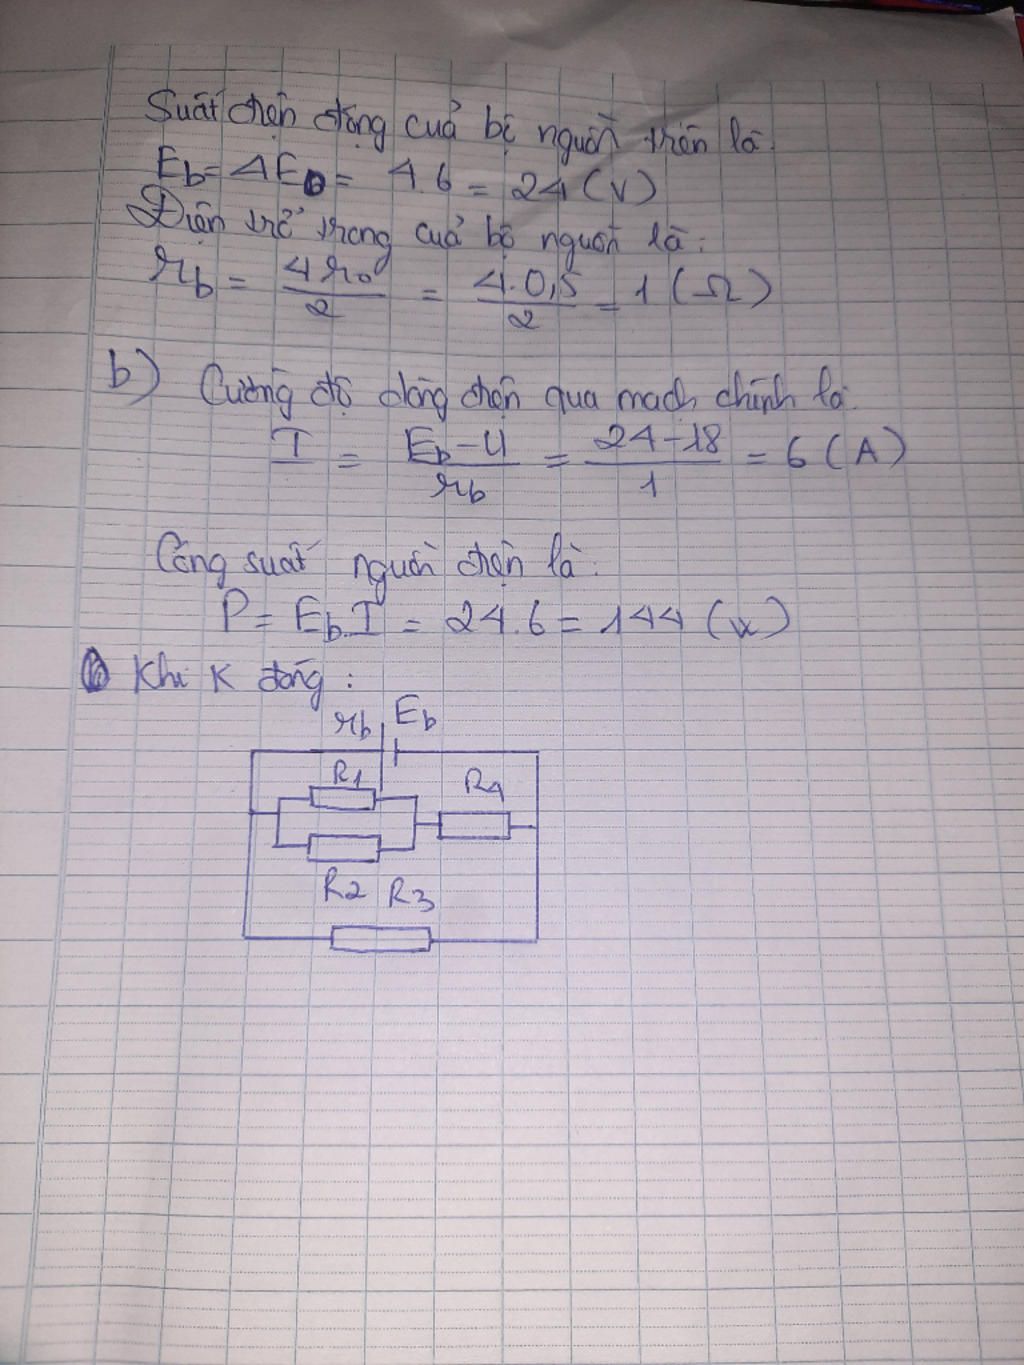 Suất điện động của bộ nguồn trên là.
Eb = 4E0 = 4.6 = 24 (V)
Điện trở trong của bộ nguồn là:
rb = 4r0/2 = 4.0,5/2 = 1 (Ω)
b) Cường độ dòng điện qua mạch chính là.
I = Eb-U/rb = 24-18/1 = 6 (A)
Công suất nguồn điện là:
P = Eb.I = 24.6 = 144 (W)
Khi K đóng:
rb Eb
R1 R4
R2 R3